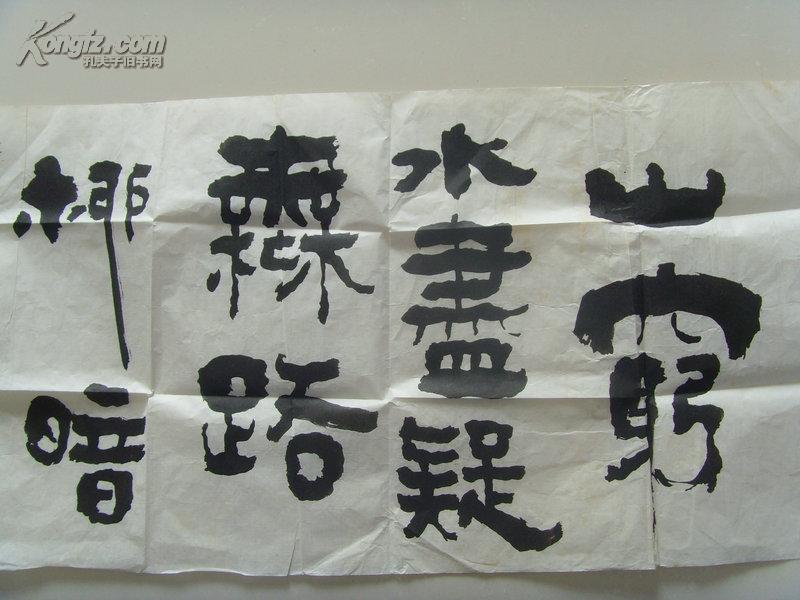 山窮
水盡疑
無路
柳暗
Kongfz.com
孔夫子旧书网